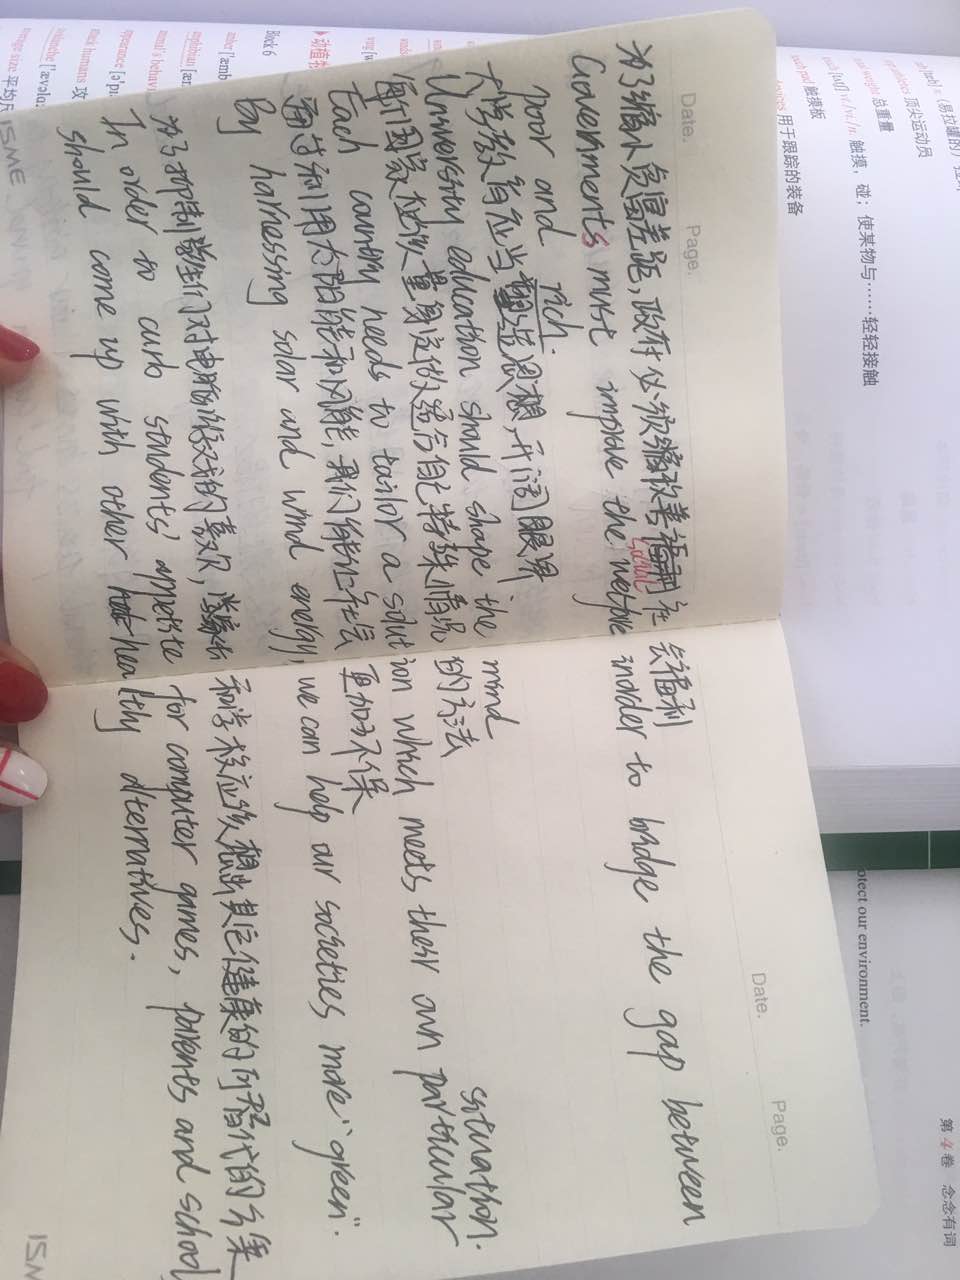 Date.    Page.    Date.    Page.
为了缩小贫富差距,政府必须改善社会福利
Governments must improve the social welfare inorder to bridge the gap between
poor and rich.
大学教育应当塑造思想,开阔眼界
University education should shape the mind
每个国家应该量身定做适合自己特殊情况的方法
Each country needs to tailor a solution which meets their own particular situation.
通过利用太阳能和风能,我们能让社会更加环保
By harnessing solar and wind energy, we can help our societies more "green".
为了抑制学生们对电脑游戏的喜欢,家长和学校应该想出其它健康的可替代的方案
In order to curb students' appetite for computer games, parents and school
should come up with other healthy alternatives.
ISME
ISM
总重量
顶尖运动员
触摸,碰;使某物与……轻轻接触
触摸板
用于跟踪的装备
Book 6
amber ['æmb
amphibian [æm
animal's behavi
appearance [ə'pɪ
attack humans 攻
average size 平均尺
otect our environment.
第4卷 念念有词